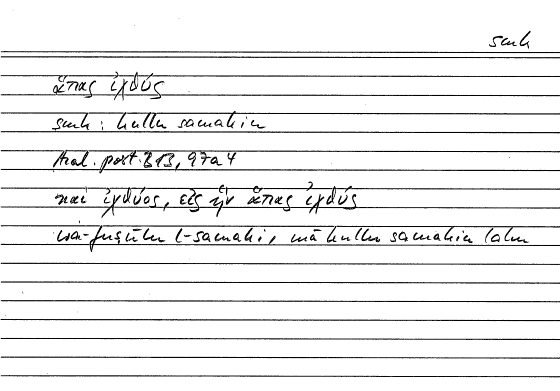 smk
ἅπας ἰχθύς
smk : kullu samakin
Anal. post. B 13, 97a 4
καὶ ἰχθύος, εἰς ἣν ἅπας ἰχθύς
wa-fuṣūlu l-samaki, mā kullu samakin lahu